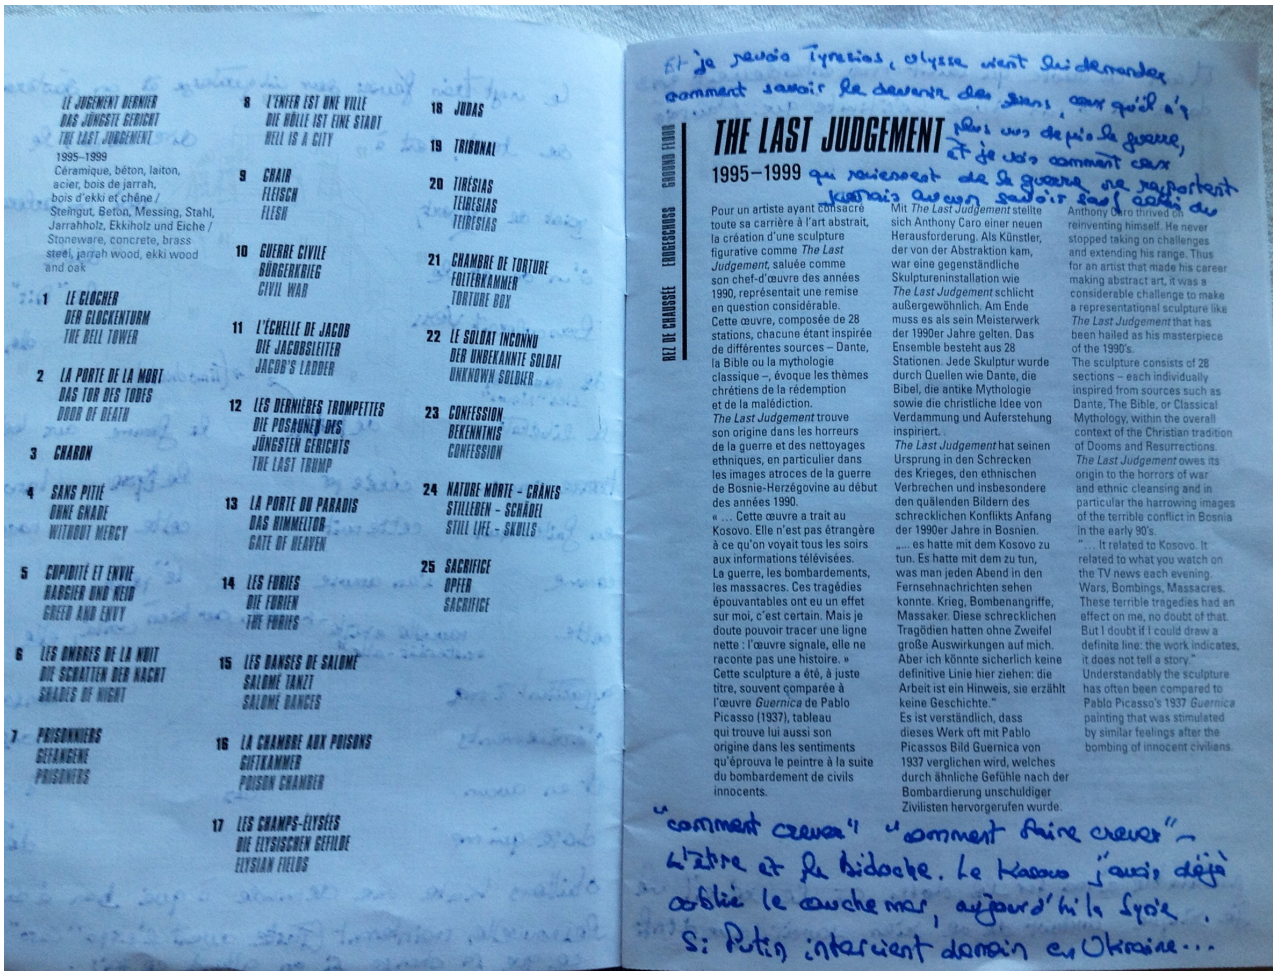 LE JUGEMENT DERNIER
DAS JÜNGSTE GERICHT
THE LAST JUDGEMENT
1995–1999
Céramique, béton, laiton,
acier, bois de jarrah,
bois d'ekki et chêne /
Steingut, Beton, Messing, Stahl,
Jarrahholz, Ekkiholz und Eiche /
Stoneware, concrete, brass
steel, jarrah wood, ekki wood
and oak
1 LE CLOCHER
DER GLOCKENTURM
THE BELL TOWER
2 LA PORTE DE LA MORT
DAS TOR DES TODES
DOOR OF DEATH
3 CHARON
4 SANS PITIÉ
OHNE GNADE
WITHOUT MERCY
5 CUPIDITÉ ET ENVIE
HABGIER UND NEID
GREED AND ENVY
6 LES OMBRES DE LA NUIT
DIE SCHATTEN DER NACHT
SHADES OF NIGHT
7 PRISONNIERS
GEFANGENE
PRISONERS
8 L'ENFER EST UNE VILLE
DIE HÖLLE IST EINE STADT
HELL IS A CITY
9 CHAIR
FLEISCH
FLESH
10 GUERRE CIVILE
BÜRGERKRIEG
CIVIL WAR
11 L'ÉCHELLE DE JACOB
DIE JACOBSLEITER
JACOB'S LADDER
12 LES DERNIÈRES TROMPETTES
DIE POSAUNEN DES
JÜNGSTEN GERICHTS
THE LAST TRUMP
13 LA PORTE DU PARADIS
DAS HIMMELTOR
GATE OF HEAVEN
14 LES FURIES
DIE FURIEN
THE FURIES
15 LES DANSES DE SALOMÉ
SALOMÉ TANZT
SALOMÉ DANCES
16 LA CHAMBRE AUX POISONS
GIFTKAMMER
POISON CHAMBER
17 LES CHAMPS-ÉLYSÉES
DIE ELYSISCHEN GEFILDE
ELYSIAN FIELDS
18 JUDAS
19 TRIBUNAL
20 TIRÉSIAS
TEIRESIAS
TEIRESIAS
21 CHAMBRE DE TORTURE
FOLTERKAMMER
TORTURE BOX
22 LE SOLDAT INCONNU
DER UNBEKANNTE SOLDAT
UNKNOWN SOLDIER
23 CONFESSION
BEKENNTNIS
CONFESSION
24 NATURE MORTE - CRÂNES
STILLEBEN - SCHÄDEL
STILL LIFE - SKULLS
25 SACRIFICE
OPFER
SACRIFICE
Et je revois Tyresias, Ulysse vient lui demander
comment savoir le devenir des siens, ceux qu'il n'a
plus vus depuis la guerre,
et je vois comment ceux
qui reviennent de la guerre ne rapportent
jamais aucun savoir sauf celui du
REZ DE CHAUSSÉE ERDGESCHOSS GROUND FLOOR
THE LAST JUDGEMENT
1995–1999
Pour un artiste ayant consacré
toute sa carrière à l'art abstrait,
la création d'une sculpture
figurative comme The Last
Judgement, saluée comme
son chef-d'œuvre des années
1990, représentait une remise
en question considérable.
Cette œuvre, composée de 28
stations, chacune étant inspirée
de différentes sources – Dante,
la Bible ou la mythologie
classique –, évoque les thèmes
chrétiens de la rédemption
et de la malédiction.
The Last Judgement trouve
son origine dans les horreurs
de la guerre et des nettoyages
ethniques, en particulier dans
les images atroces de la guerre
de Bosnie-Herzégovine au début
des années 1990.
« … Cette œuvre a trait au
Kosovo. Elle n'est pas étrangère
à ce qu'on voyait tous les soirs
aux informations télévisées.
La guerre, les bombardements,
les massacres. Ces tragédies
épouvantables ont eu un effet
sur moi, c'est certain. Mais je
doute pouvoir tracer une ligne
nette : l'œuvre signale, elle ne
raconte pas une histoire. »
Cette sculpture a été, à juste
titre, souvent comparée à
l'œuvre Guernica de Pablo
Picasso (1937), tableau
qui trouve lui aussi son
origine dans les sentiments
qu'éprouva le peintre à la suite
du bombardement de civils
innocents.
Mit The Last Judgement stellte
sich Anthony Caro einer neuen
Herausforderung. Als Künstler,
der von der Abstraktion kam,
war eine gegenständliche
Skulptureninstallation wie
The Last Judgement schlicht
außergewöhnlich. Am Ende
muss es als sein Meisterwerk
der 1990er Jahre gelten. Das
Ensemble besteht aus 28
Stationen. Jede Skulptur wurde
durch Quellen wie Dante, die
Bibel, die antike Mythologie
sowie die christliche Idee von
Verdammung und Auferstehung
inspiriert.
The Last Judgement hat seinen
Ursprung in den Schrecken
des Krieges, den ethnischen
Verbrechen und insbesondere
den quälenden Bildern des
schrecklichen Konflikts Anfang
der 1990er Jahre in Bosnien.
„… es hatte mit dem Kosovo zu
tun. Es hatte mit dem zu tun,
was man jeden Abend in den
Fernsehnachrichten sehen
konnte. Krieg, Bombenangriffe,
Massaker. Diese schrecklichen
Tragödien hatten ohne Zweifel
große Auswirkungen auf mich.
Aber ich könnte sicherlich keine
definitive Linie hier ziehen: die
Arbeit ist ein Hinweis, sie erzählt
keine Geschichte."
Es ist verständlich, dass
dieses Werk oft mit Pablo
Picassos Bild Guernica von
1937 verglichen wird, welches
durch ähnliche Gefühle nach der
Bombardierung unschuldiger
Zivilisten hervorgerufen wurde.
Anthony Caro thrived on
reinventing himself. He never
stopped taking on challenges
and extending his range. Thus
for an artist that made his career
making abstract art, it was a
considerable challenge to make
a representational sculpture like
The Last Judgement that has
been hailed as his masterpiece
of the 1990's.
The sculpture consists of 28
sections – each individually
inspired from sources such as
Dante, The Bible, or Classical
Mythology, within the overall
context of the Christian tradition
of Dooms and Resurrections.
The Last Judgement owes its
origin to the horrors of war
and ethnic cleansing and in
particular the harrowing images
of the terrible conflict in Bosnia
in the early 90's.
"… It related to Kosovo. It
related to what you watch on
the TV news each evening.
Wars, Bombings, Massacres.
These terrible tragedies had an
effect on me, no doubt of that.
But I doubt if I could draw a
definite line: the work indicates,
it does not tell a story."
Understandably the sculpture
has often been compared to
Pablo Picasso's 1937 Guernica
painting that was stimulated
by similar feelings after the
bombing of innocent civilians.
"comment crever" "comment faire crever" –
L'Être et la Bidoche. Le Kosovo j'avais déjà
oublié le cauchemar, aujourd'hui la Syrie.
Si Putin intervient demain en Ukraine...